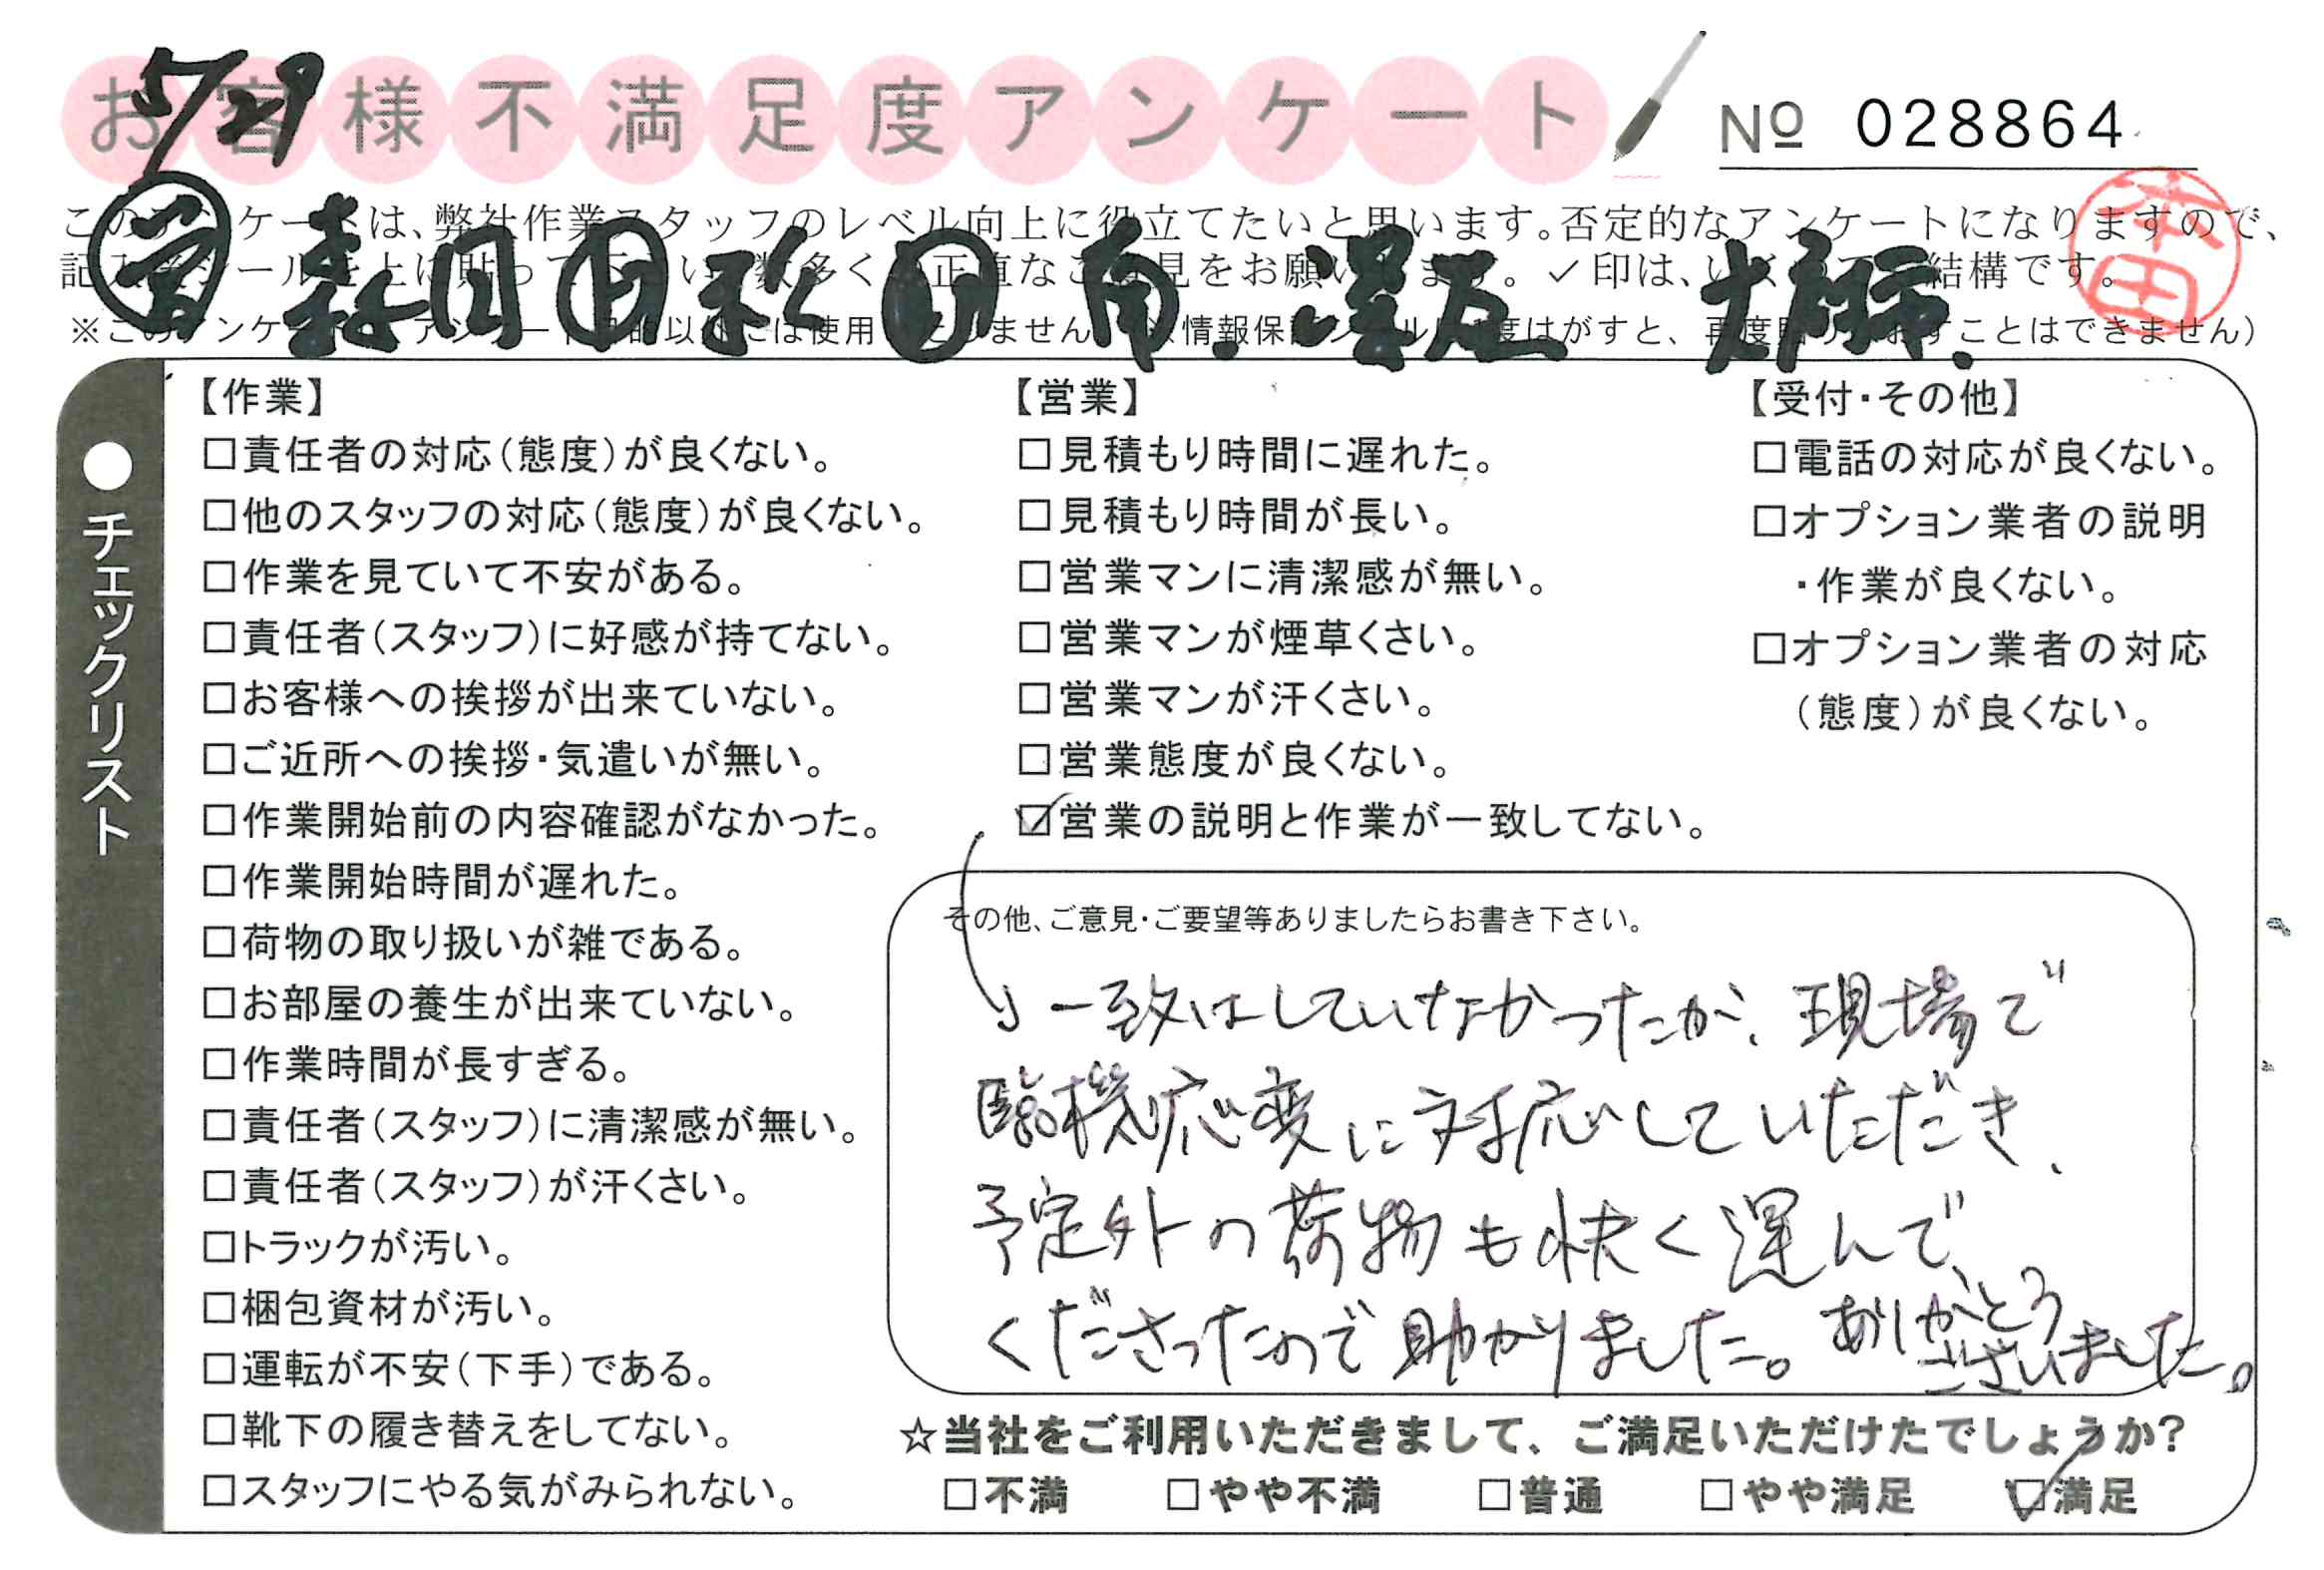 お客様不満足度アンケート
5/29
№ 028864
本田
このアンケートは、弊社作業スタッフのレベル向上に役立てたいと思います。否定的なアンケートになりますので、
記入後シールを上に貼って下さい。数多くの正直なご意見をお願いします。✓印は、いくつでも結構です。
森田
澤
●チェックリスト
【作業】
□責任者の対応(態度)が良くない。
□他のスタッフの対応(態度)が良くない。
□作業を見ていて不安がある。
□責任者(スタッフ)に好感が持てない。
□お客様への挨拶が出来ていない。
□ご近所への挨拶・気遣いが無い。
□作業開始前の内容確認がなかった。
□作業開始時間が遅れた。
□荷物の取り扱いが雑である。
□お部屋の養生が出来ていない。
□作業時間が長すぎる。
□責任者(スタッフ)に清潔感が無い。
□責任者(スタッフ)が汗くさい。
□トラックが汚い。
□梱包資材が汚い。
□運転が不安(下手)である。
□靴下の履き替えをしてない。
□スタッフにやる気がみられない。
【営業】
□見積もり時間に遅れた。
□見積もり時間が長い。
□営業マンに清潔感が無い。
□営業マンが煙草くさい。
□営業マンが汗くさい。
□営業態度が良くない。
☑営業の説明と作業が一致してない。
【受付・その他】
□電話の対応が良くない。
□オプション業者の説明
・作業が良くない。
□オプション業者の対応
(態度)が良くない。
その他、ご意見・ご要望等ありましたらお書き下さい。
一致はしていなかったが、現場で
臨機応変に対応していただき、
予定外の荷物も快く運んで
くださったので助かりました。ありがとう
ございました。
☆当社をご利用いただきまして、ご満足いただけたでしょうか?
□不満 □やや不満 □普通 □やや満足 ☑満足